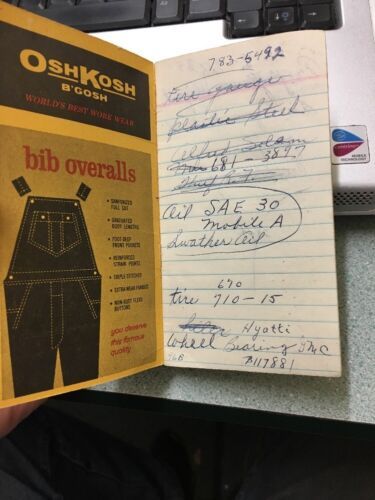 OSHKOSH
B'GOSH
WORLD'S BEST WORK WEAR
bib overalls
• SANFORIZED
FULL CUT
• GRADUATED
BODY LENGTHS
• FOOT-DEEP
FRONT POCKETS
• REINFORCED
STRAIN POINTS
• TRIPLE STITCHED
• EXTRA-WEAR FABRICS
• NON-RUST FLEXO
BUTTONS
you deserve
this famous
quality
783-5492
tire gauge
plastic Steel
Alfred
681-3897
Oil SAE 30
Mobile A
Swather Oil
670
tire 710-15
Hyatti
Wheel Bearing GMC
117881